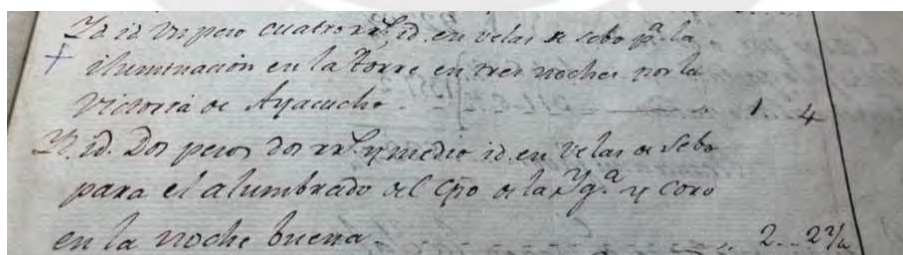 Yd. id. Un peso cuatro rr.s id. en velas de sebo p.a la
iluminacion en la torre en tres noches por la
Victoria de Ayacucho. 1. 4
Yd. id. Dos pesos dos rr.s y medio id. en velas de sebo
para el alumbrado del Cpo de la Yg.a y coro
en la noche buena. 2.. 2